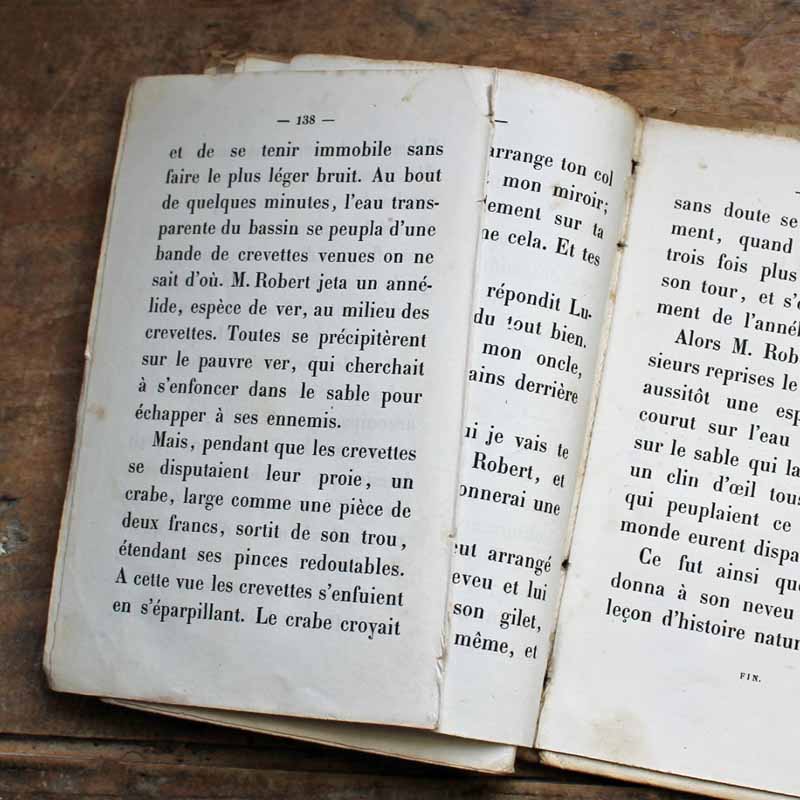 — 138 —
et de se tenir immobile sans
faire le plus léger bruit. Au bout
de quelques minutes, l'eau trans-
parente du bassin se peupla d'une
bande de crevettes venues on ne
sait d'où. M. Robert jeta un anné-
lide, espèce de ver, au milieu des
crevettes. Toutes se précipitèrent
sur le pauvre ver, qui cherchait
à s'enfoncer dans le sable pour
échapper à ses ennemis.
Mais, pendant que les crevettes
se disputaient leur proie, un
crabe, large comme une pièce de
deux francs, sortit de son trou,
étendant ses pinces redoutables.
A cette vue les crevettes s'enfuient
en s'éparpillant. Le crabe croyait
—
arrange ton col
mon miroir;
sur ta
cela. Et tes
répondit Lu-
du tout bien.
mon oncle,
derrière
je vais te
Robert, et
une
arrangé
et lui
son gilet,
même, et
sans doute se
ment, quand
trois fois plus
son tour, et
ment de
Alors M.
sieurs reprises le
aussitôt une
courut sur l'eau
sur le sable qui
un clin d'œil
qui peuplaient ce
monde eurent
Ce fut ainsi
donna à son neveu
leçon d'histoire
FIN.